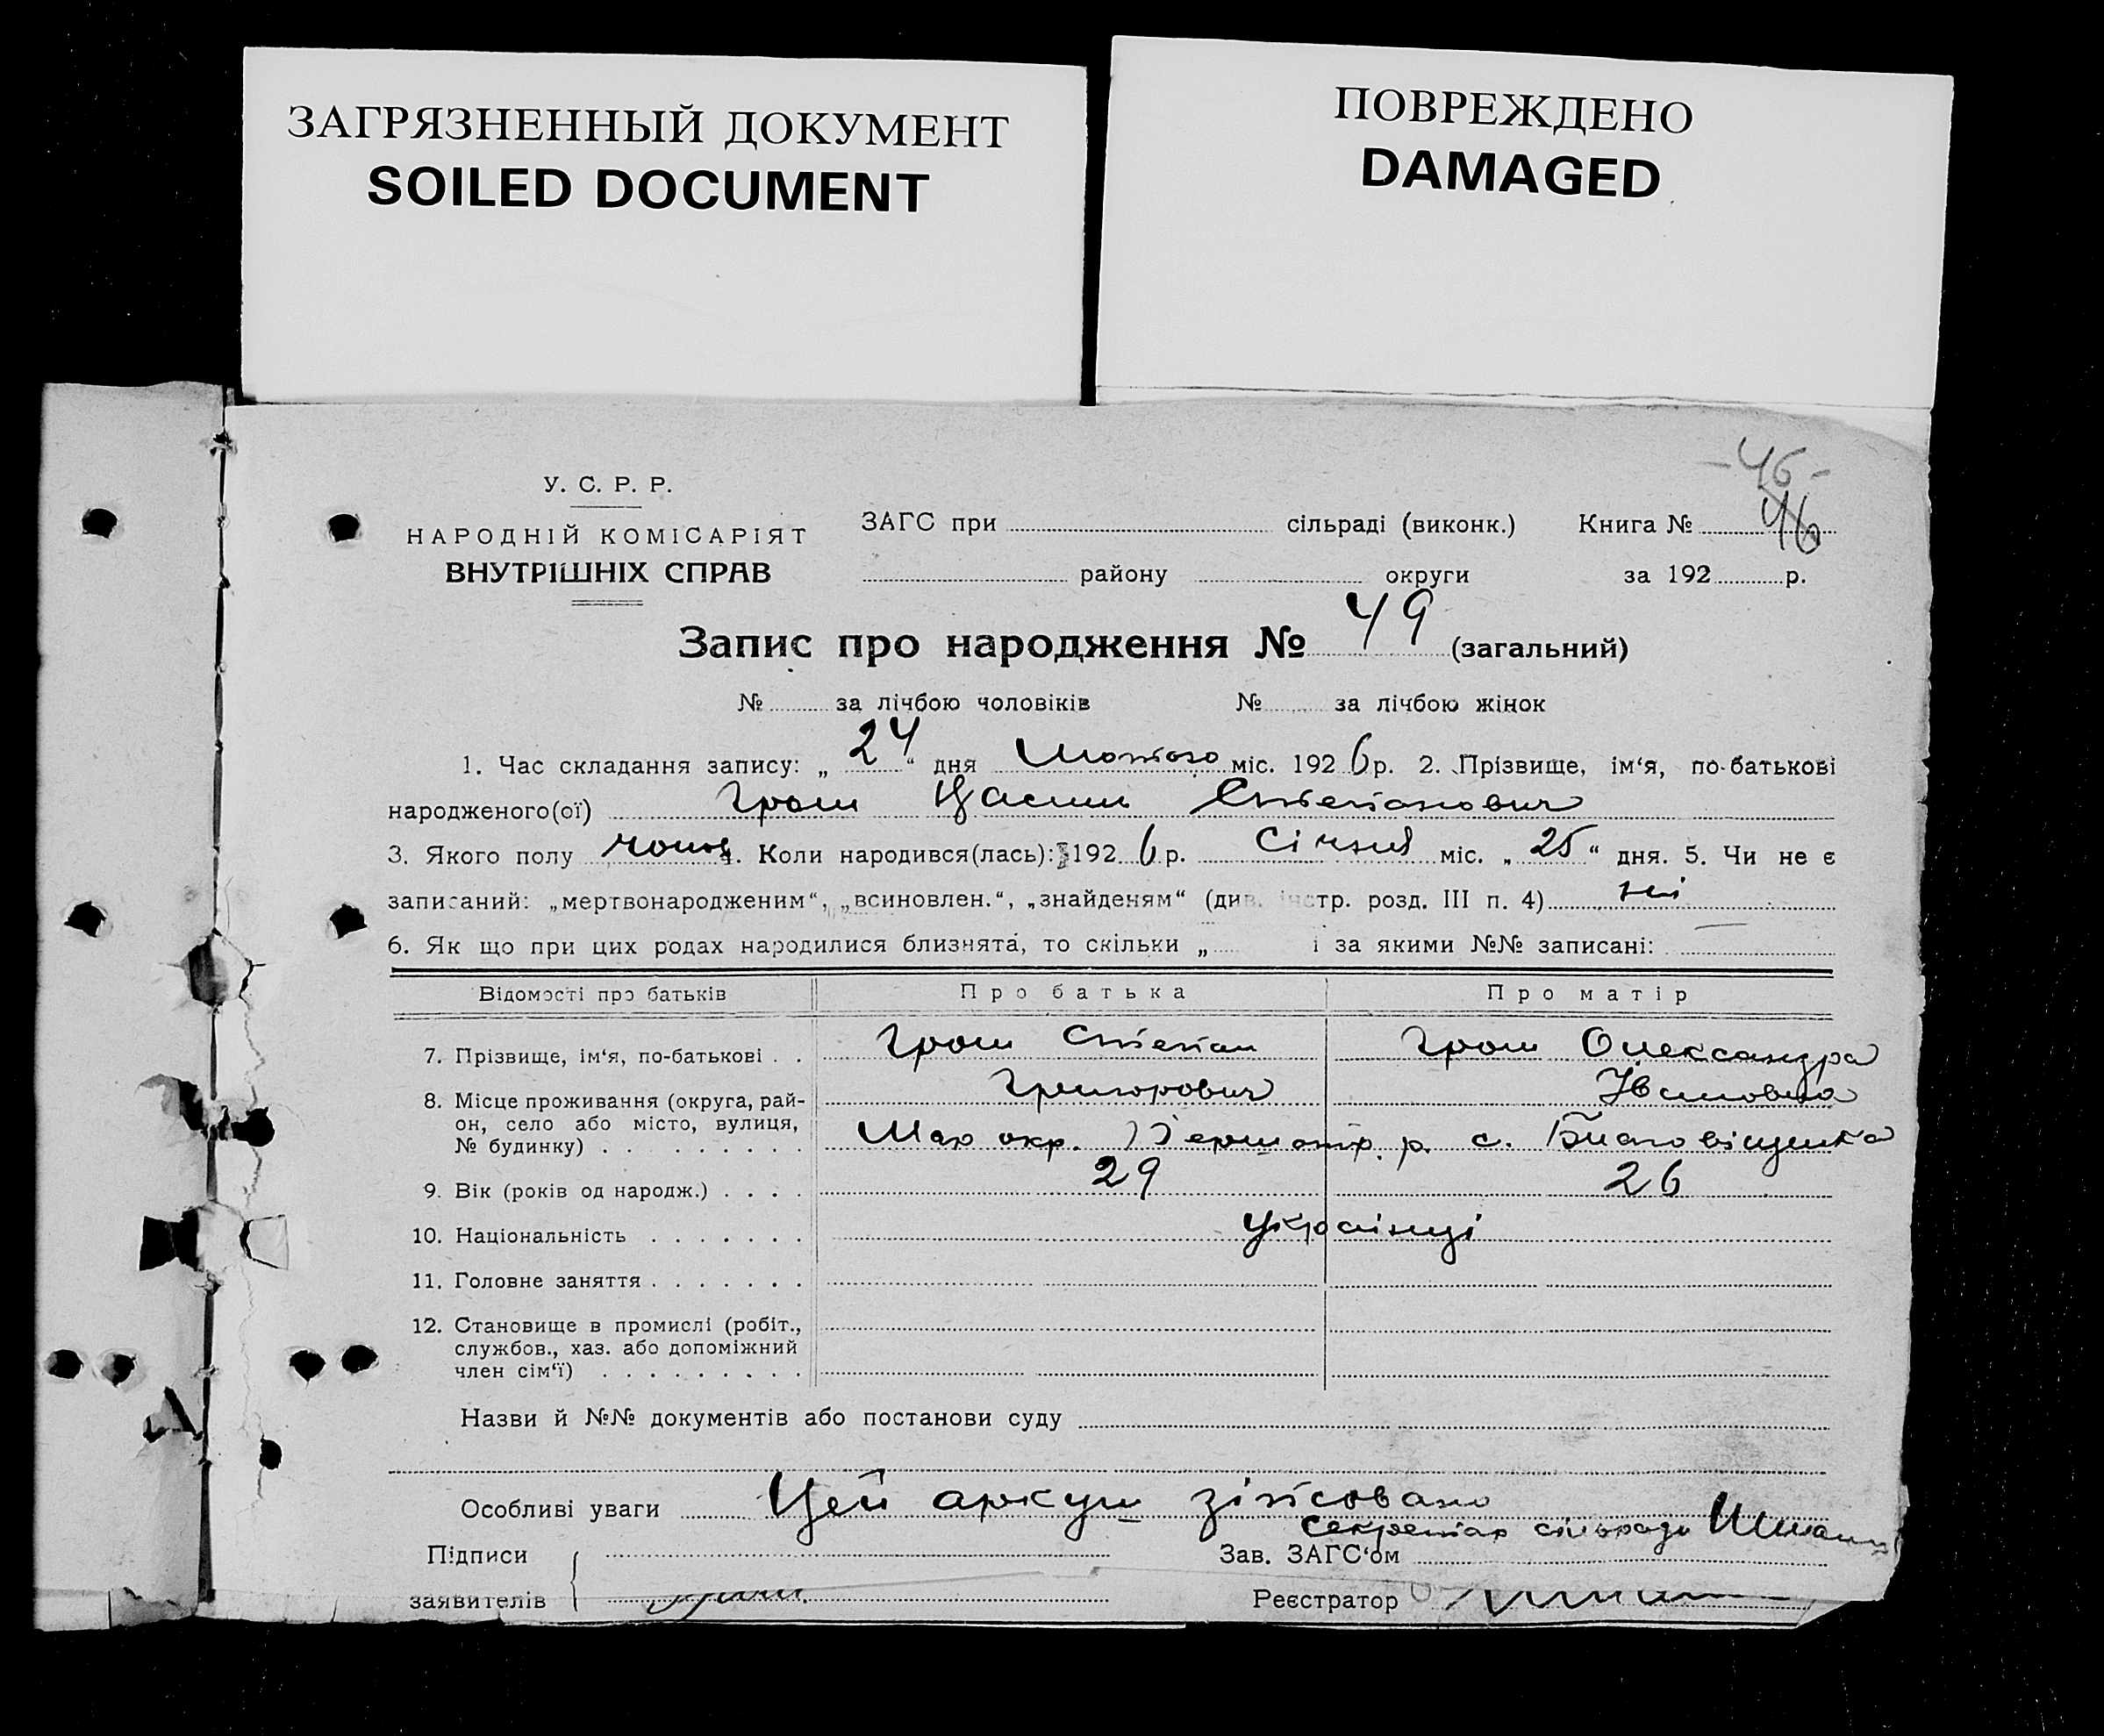 ЗАГРЯЗНЕННЫЙ ДОКУМЕНТ
SOILED DOCUMENT
ПОВРЕЖДЕНО
DAMAGED
-46-
У. С. Р. Р.
НАРОДНІЙ КОМІСАРІЯТ
ВНУТРІШНІХ СПРАВ
ЗАГС при сільраді (виконк.) Книга № 46
району округи за 192 р.
Запис про народження № 49 (загальний)
№ за лічбою чоловіків № за лічбою жінок
1. Час складання запису: „24“ дня Лютого міс. 1926 р. 2. Прізвище, ім‘я, по-батькові
народженого(ої) Грош Степанович
3. Якого полу 4. Коли народився(лась): 1926 р. Січня міс. „25“ дня. 5. Чи не є
записаний: „мертвонародженим“, „всиновлен.“, „знайденям“ (див. інстр. розд. III п. 4) ні
6. Як що при цих родах народилися близнята, то скільки „ і за якими №№ записані:
Відомості про батьків Про батька Про матір
7. Прізвище, ім‘я, по-батькові . . Грош Степан Грош Олександра
Григорович Івановна
8. Місце проживання (округа, рай-
он, село або місто, вулиця,
№ будинку) . . . . . . . . . Мар окр. р. с.
9. Вік (років од народж.) . . . . 29 26
10. Національність . . . . . . . українці
11. Головне заняття . . . . . . .
12. Становище в промислі (робіт.,
службов., хаз. або допоміжний
член сім‘ї) . . . . . . . . .
Назви й №№ документів або постанови суду
Особливі уваги Цей аркуш зіпсовано
Секретар сільради
Підписи Зав. ЗАГС‘ом
заявителів Реєстратор